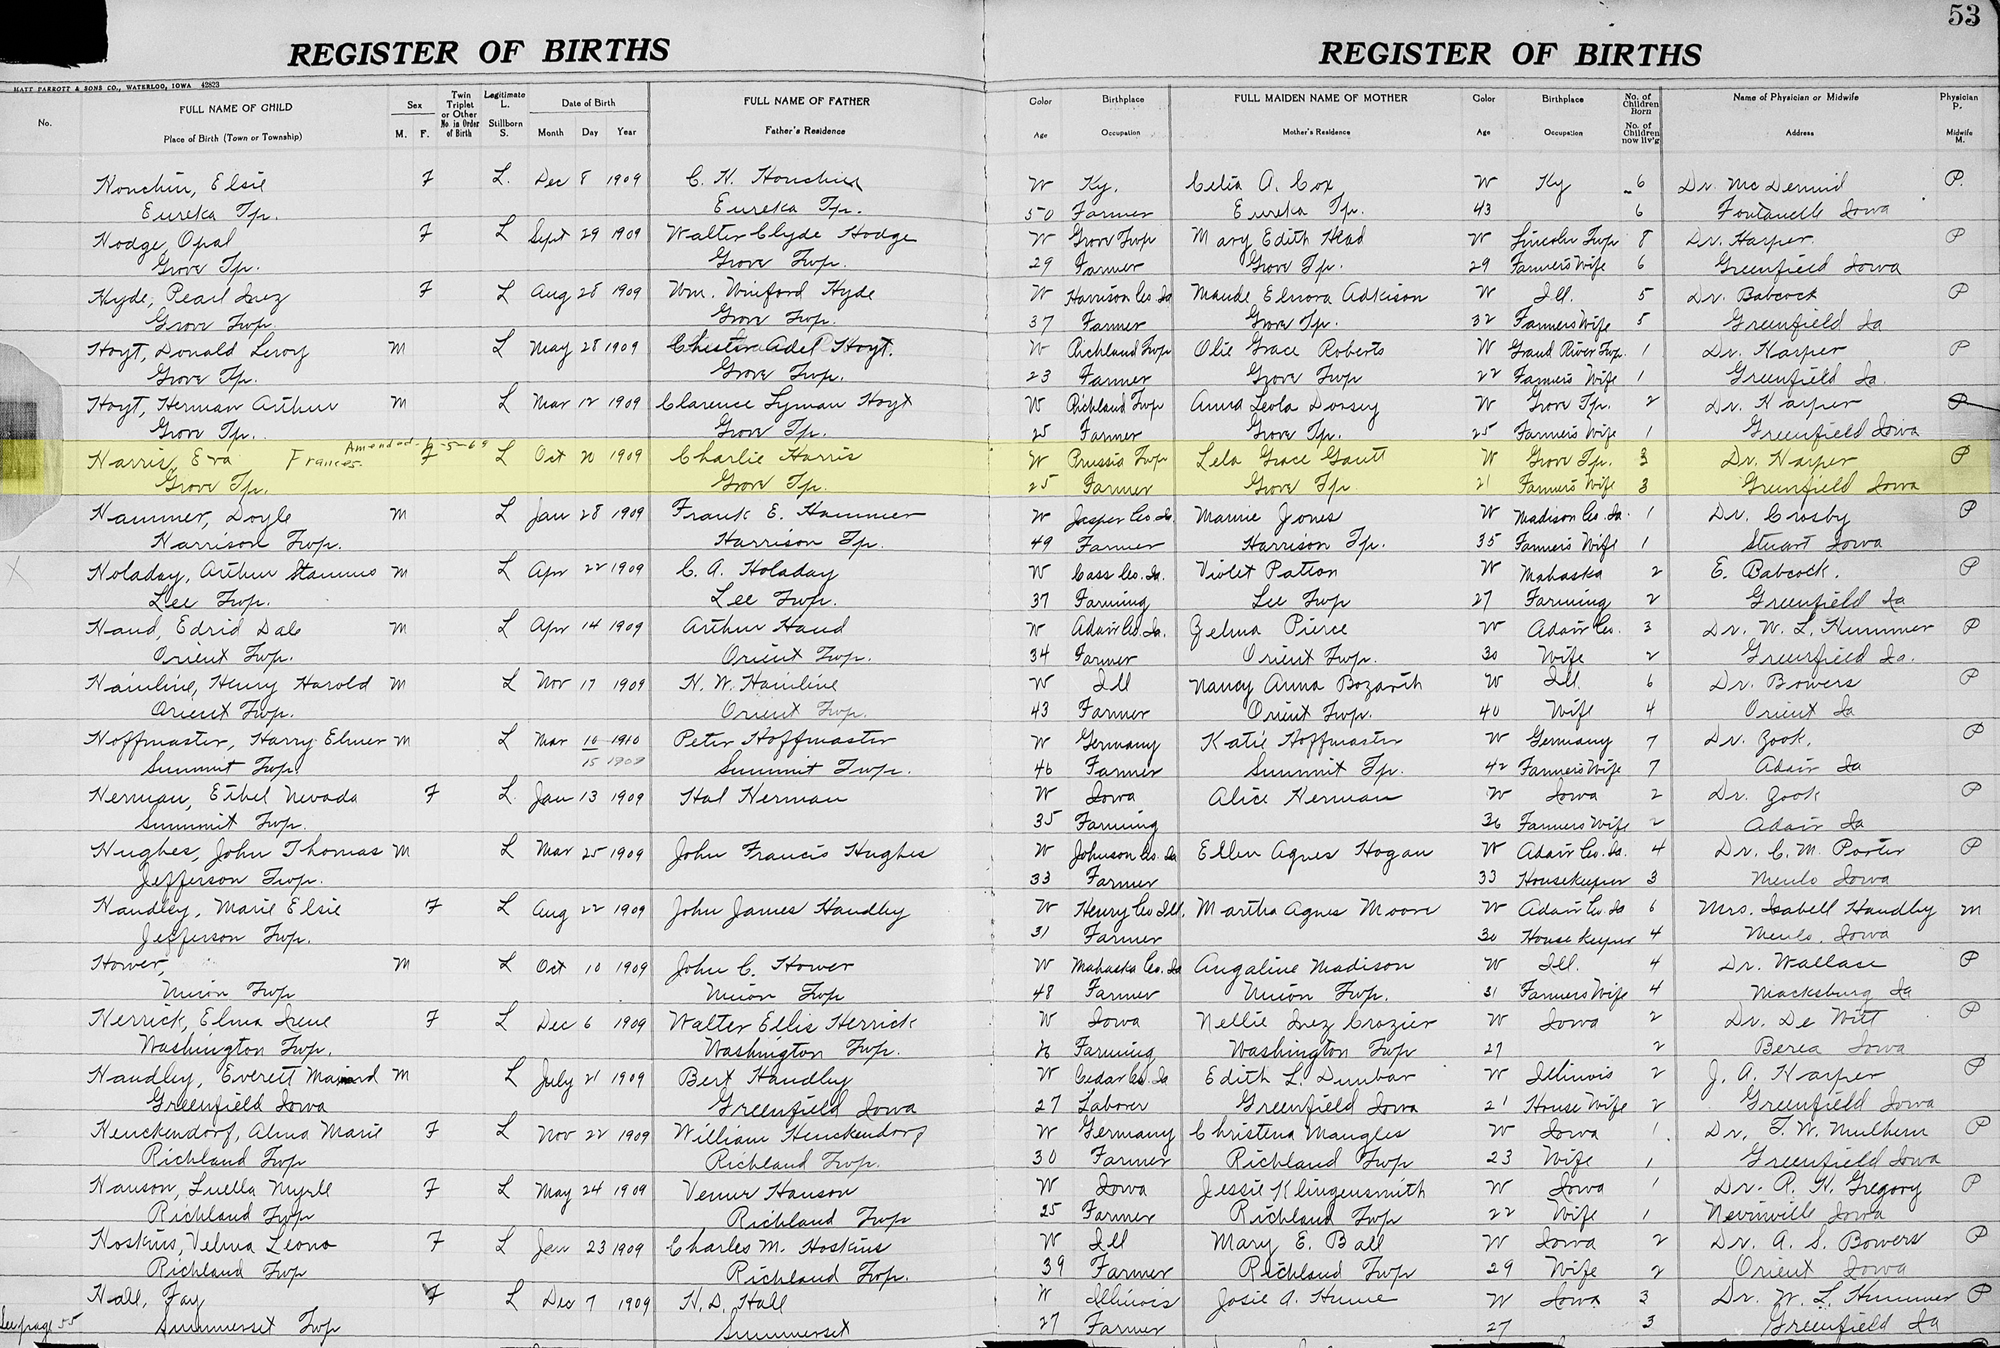 53
REGISTER OF BIRTHS REGISTER OF BIRTHS
MATT PARROTT & SONS CO., WATERLOO, IOWA 42823
No. FULL NAME OF CHILD Sex Twin Triplet or Other No. in Order of Birth Legitimate L. Date of Birth FULL NAME OF FATHER Color Birthplace FULL MAIDEN NAME OF MOTHER Color Birthplace No. of Children Born Name of Physician or Midwife Physician P.
Place of Birth (Town or Township) M. F. Stillborn S. Month Day Year Father's Residence Age Occupation Mother's Residence Age Occupation No. of Children now liv'g Address Midwife M.
Houchin, Elsie F L. Dec 8 1909 C. H. Houchin W Ky. Celia A. Cox W Ky 6 Dr. McDermid P.
Eureka Tp. Eureka Tp. 50 Farmer Eureka Tp. 43 6 Fontanelle Iowa
Hodge, Opal F L Sept 29 1909 Walter Clyde Hodge W Grove Twp Mary Edith Head W Lincoln Twp 8 Dr. Harper. P
Grove Tp. Grove Twp. 29 Farmer Grove Tp. 29 Farmers Wife 6 Greenfield Iowa
Hyde, Pearl Inez F L Aug 28 1909 Wm. Winford Hyde W Harrison Co. Ia Maude Elnora Adkison W Ill. 5 Dr. Babcock P
Grove Twp. Grove Twp. 37 Farmer Grove Tp. 32 Farmers Wife 5 Greenfield Ia
Hoyt, Donald Leroy M L May 28 1909 Chester Adel Hoyt. W Richland Twp Olie Grace Roberts W Grand River Twp. 1 Dr. Harper P
Grove Tp. Grove Twp. 23 Farmer Grove Twp 22 Farmers Wife 1 Greenfield Ia.
Hoyt, Herman Arthur M L Mar 12 1909 Clarence Lyman Hoyt W Richland Twp Anna Leola Dorsey W Grove Tp. 2 Dr. Harper P
Grove Tp. Grove Tp. 25 Farmer Grove Tp. 25 Farmers Wife 1 Greenfield Iowa
Amended
Harris, Eva Frances. F L Oct 20 1909 Charlie Harris W Prussia Twp Lela Grace Gantt W Grove Tp. 3 Dr. Harper P
Grove Tp. Grove Tp. 25 Farmer Grove Tp. 21 Farmers Wife 3 Greenfield Iowa
Hammer, Doyle M L Jan 28 1909 Frank E. Hammer W Jasper Co. Ia. Mamie Jones W Madison Co. Ia. 1 Dr. Crosby P
Harrison Twp. Harrison Tp. 49 Farmer Harrison Tp. 35 Farmers Wife 1 Stuart Iowa
Holaday, Arthur M L Apr 22 1909 C. A. Holaday W Cass Co. Ia. Violet Patton W Mahaska 2 E. Babcock. P
Lee Twp. Lee Twp. 37 Farming Lee Twp 27 Farming 2 Greenfield Ia
Hand, Edrid Dale M L Apr 14 1909 Arthur Hand W Adair Co. Ia. Zelma Pierce W Adair Co. 3 Dr. W. L. Hummer P
Orient Twp. Orient Twp. 34 Farmer Orient Twp. 30 Wife 2 Greenfield Ia.
Hainline, Henry Harold M L Nov 17 1909 H. W. Hainline W Ill Nancy Anna Bozarth W Ill. 6 Dr. Bowers P
Orient Twp. Orient Twp. 43 Farmer Orient Twp. 40 Wife 4 Orient Ia
Hoffmaster, Harry Elmer M L Mar 10 1910 Peter Hoffmaster W Germany Katie Hoffmaster W Germany 7 Dr. Zook. P
Summit Twp. 15 1909 Summit Twp. 46 Farmer Summit Tp. 42 Farmers Wife 7 Adair Ia
Herman, Ethel Nevada F L Jan 13 1909 Hal Herman W Iowa Alice Herman W Iowa 2 Dr. Zook P
Summit Twp. 35 Farming 36 Farmers Wife 2 Adair Ia
Hughes, John Thomas M L Mar 25 1909 John Francis Hughes W Johnson Co. Ia Ellen Agnes Hogan W Adair Co. Ia. 4 Dr. C. M. Porter P
Jefferson Twp. 33 Farmer 33 Housekeeper 3 Menlo Iowa
Handley, Marie Elsie F L Aug 22 1909 John James Handley W Henry Co. Ill. Martha Agnes Moore W Adair Co. Ia 6 Mrs. Isabell Handley M
Jefferson Twp. 31 Farmer 30 House keeper 4 Menlo, Iowa
Hower, M L Oct 10 1909 John C. Hower W Mahaska Co. Ia Angaline Madison W Ill. 4 Dr. Wallace P
Union Twp Union Twp 48 Farmer Union Twp. 31 Farmers Wife 4 Macksburg Ia
Herrick, Elma Irene F L Dec 6 1909 Walter Ellis Herrick W Iowa Nellie Inez Crozier W Iowa 2 Dr. De Witt P
Washington Twp. Washington Twp. 26 Farming Washington Twp 27 2 Berea Iowa
Handley, Everett M L July 21 1909 Bert Handley W Cedar Co. Ia Edith L. Dunbar W Illinois 2 J. A. Harper P
Greenfield Iowa Greenfield Iowa 27 Laborer Greenfield Iowa 21 House Wife 2 Greenfield Iowa
Henckendorf, Alma Marie F L Nov 22 1909 William Henckendorf W Germany Christena Mangles W Iowa 1 Dr. F. W. Mulhern P
Richland Twp Richland Twp. 30 Farmer Richland Twp 23 Wife 1 Greenfield Iowa
Hanson, Luella Myrle F L May 24 1909 Hanson W Iowa Jessie Klingensmith W Iowa 1 Dr. R. H. Gregory P
Richland Twp Richland Twp 25 Farmer Richland Twp 22 Wife 1 Nevinville Iowa
Hoskins, Velma Leona F L Jan 23 1909 Charles M. Hoskins W Ill Mary E. Ball W Iowa 2 Dr. A. S. Bowers P
Richland Twp Richland Twp. 39 Farmer Richland Twp 29 Wife 2 Orient Iowa
Hall, Fay F L Dec 7 1909 H. D. Hall W Illinois Josie A. Hume W Iowa 3 Dr. W. L. Hummer P
See page 55 Summerset Twp Summerset 27 Farmer 27 3 Greenfield Ia